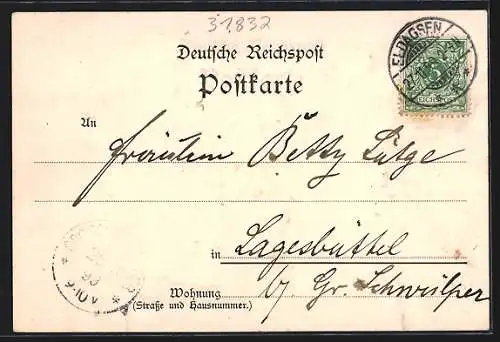 31832
Deutsche Reichspost
Postkarte
ELDAGSEN
REICHSPOST
An
Fräulein Betty Lütge
in Lagesbüttel
Wohnung b/ Gr. Schwülper
(Straße und Hausnummer.)